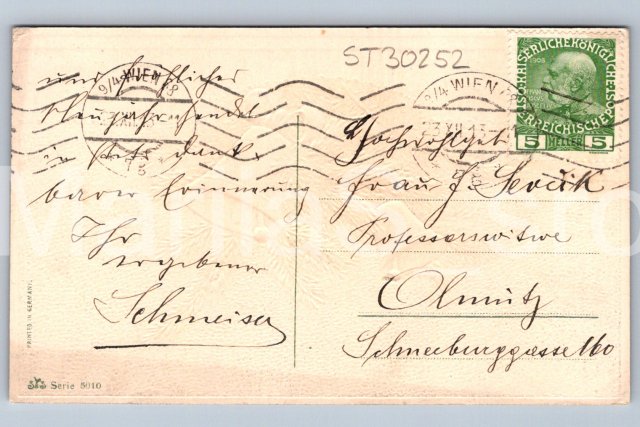 ST30252
9/4 WIEN 8
9/4 WIEN
23.XII.13
KAISERLICHE KÖNIGLICHE
ÖSTERREICHISCHE POST
1908
5 HELLER 5
und fröhlicher
Neujahrsfeiertage
in stets dank-
barer Erinnerung
Ihr
ergebener
Schmeiser
Hochwohlgeb.
Frau J. Sevčik
Professorswitwe
Olmütz
Schneeburggasse 160
PRINTED IN GERMANY.
Serie 5010